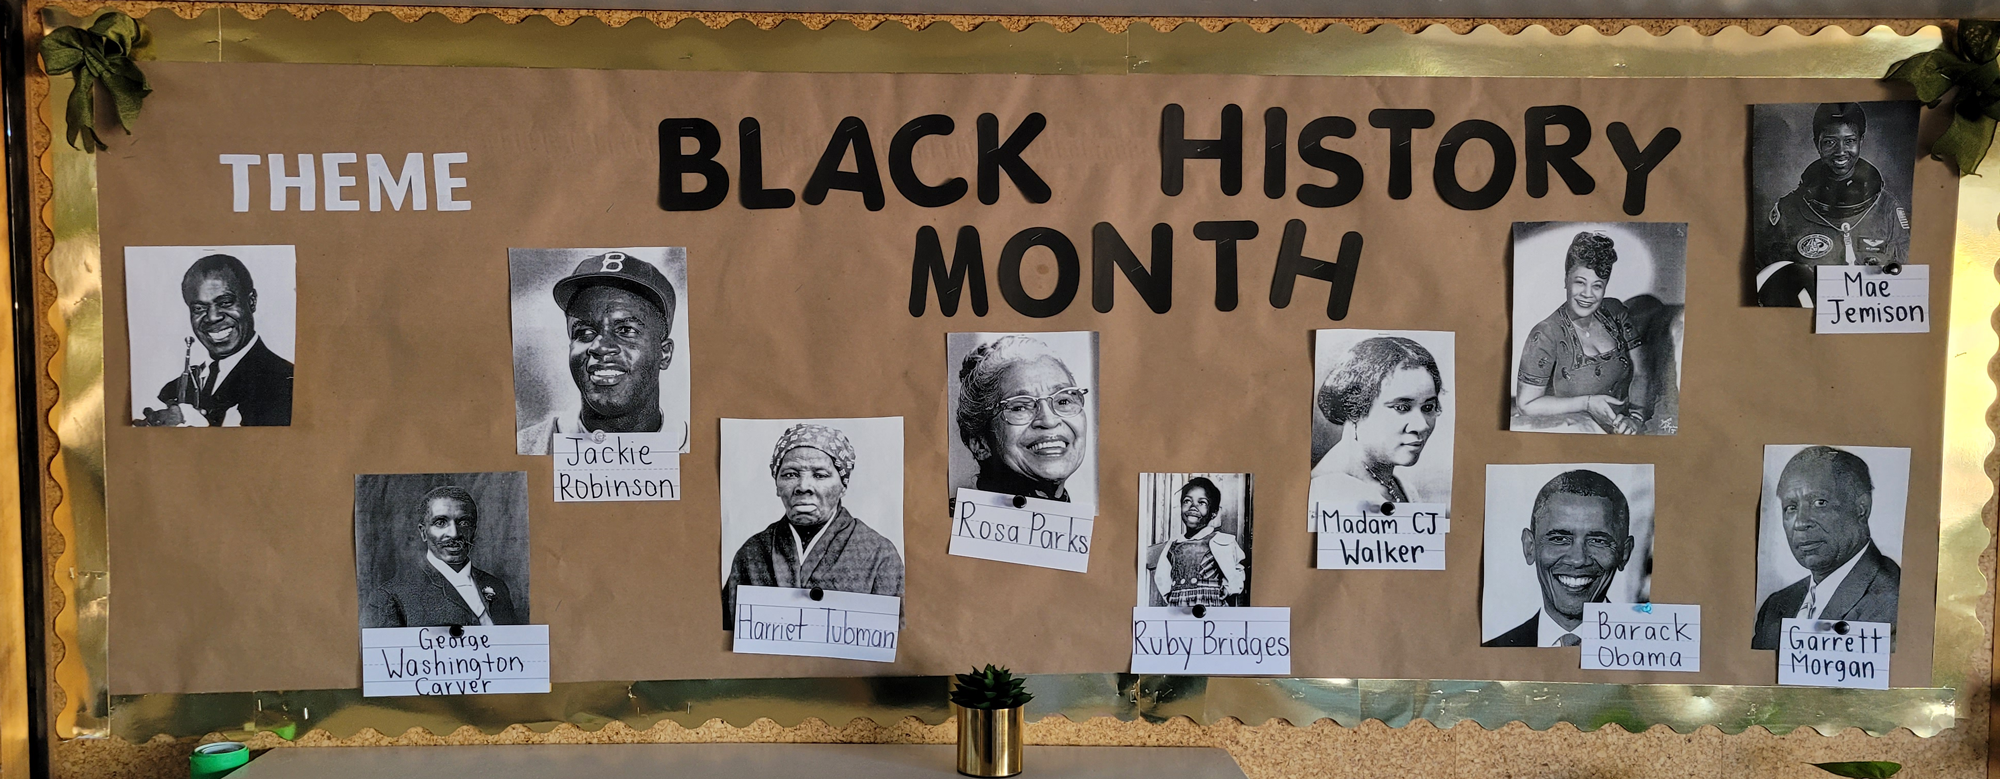 THEME
BLACK HISTORY
MONTH
Mae
Jemison
B
Jackie
Robinson
Rosa Parks
Madam CJ
Walker
George
Washington
Carver
Harriet Tubman
Ruby Bridges
Barack
Obama
Garrett
Morgan